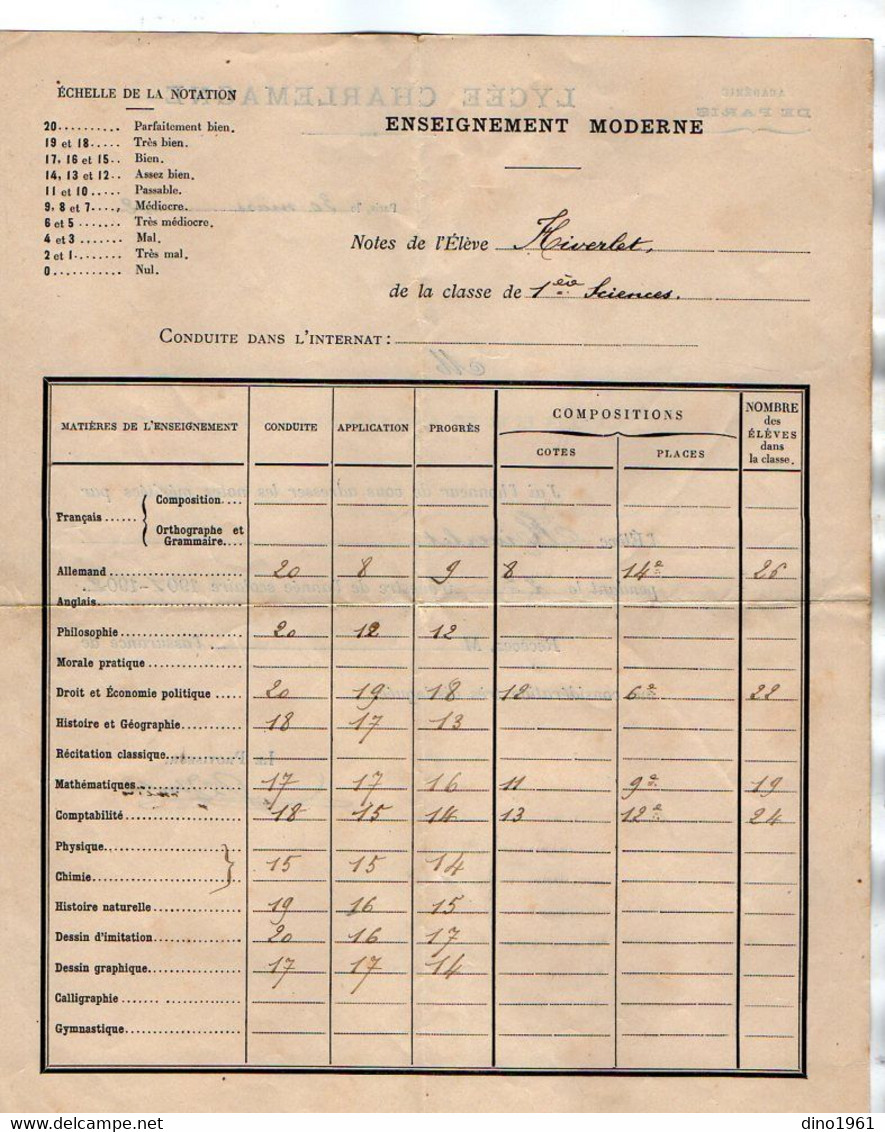 ÉCHELLE DE LA NOTATION
20.......... Parfaitement bien.
19 et 18..... Très bien.
17, 16 et 15.. Bien.
14, 13 et 12.. Assez bien.
11 et 10..... Passable.
9, 8 et 7...., Médiocre.
6 et 5....... Très médiocre.
4 et 3....... Mal.
2 et 1....... Très mal.
0.......... Nul.
LYCÉE CHARLEMAGNE
ACADÉMIE
DE PARIS
ENSEIGNEMENT MODERNE
Notes de l'Élève Hiverlet,
de la classe de 1ère Sciences.
CONDUITE DANS L'INTERNAT:
MATIÈRES DE L'ENSEIGNEMENT CONDUITE APPLICATION PROGRÈS COMPOSITIONS COTES PLACES NOMBRE des ÉLÈVES dans la classe.
Français...... Composition....
Orthographe et Grammaire....
Allemand 20 8 9 8 14e 26
Anglais
Philosophie 20 12 12
Morale pratique
Droit et Économie politique 20 19 18 12 6e 22
Histoire et Géographie 18 17 13
Récitation classique
Mathématiques 17 17 16 11 9e 19
Comptabilité 18 15 14 13 12e 24
Physique
Chimie 15 15 14
Histoire naturelle 19 16 15
Dessin d'imitation 20 16 17
Dessin graphique 17 17 14
Calligraphie
Gymnastique
dino1961